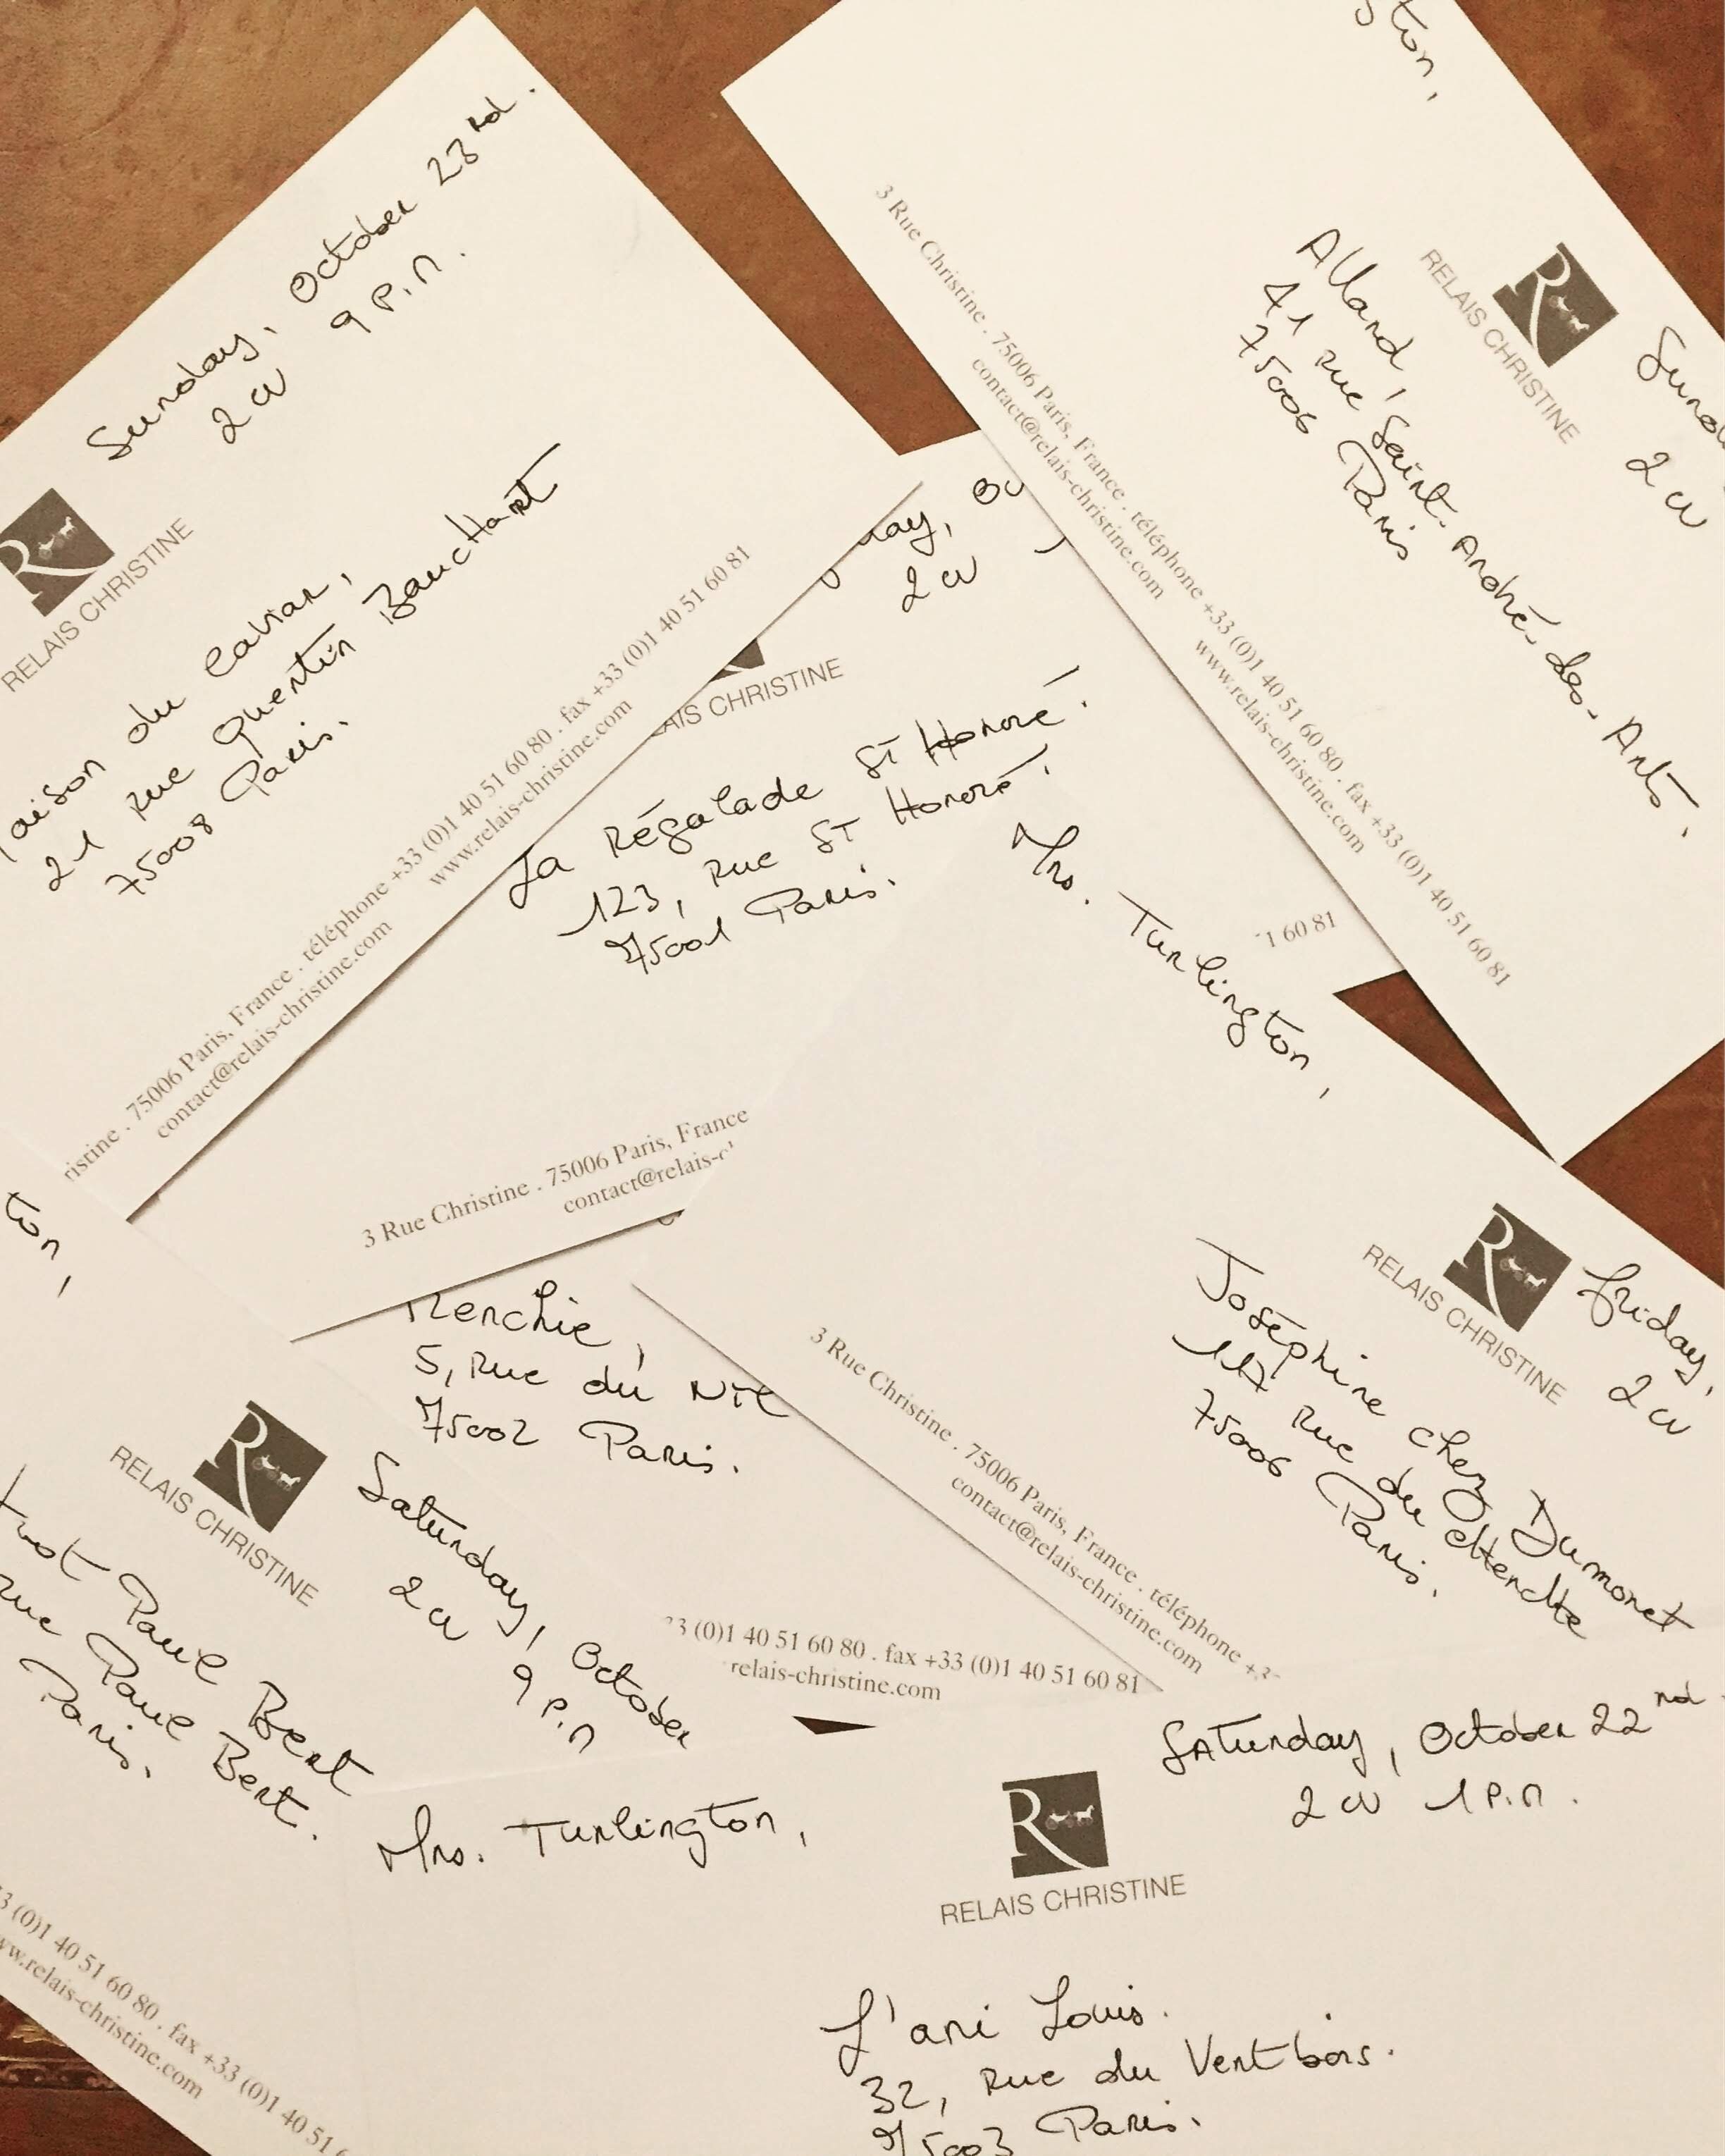 Sunday, October 23rd.
2 cv 9 p.m.
R
RELAIS CHRISTINE
aison du Caviar,
21 rue Quentin Bauchart
75008 Paris.
ristine . 75006 Paris, France . téléphone +33 (0)1 40 51 60 80 . fax +33 (0)1 40 51 60 81
contact@relais-christine.com www.relais-christine.com
ton,
R
RELAIS CHRISTINE
Sund
2 cv
Allard,
41 rue Saint-André-des-Arts.
75006 Paris
3 Rue Christine . 75006 Paris, France . téléphone +33 (0)1 40 51 60 80 . fax +33 (0)1 40 51 60 81
contact@relais-christine.com www.relais-christine.com
day, Oc
2 cv
AIS CHRISTINE
La Régalade St Honoré!
123, rue St Honoré!
75001 Paris.
1 60 81
3 Rue Christine . 75006 Paris, France
contact@relais-c
Mrs. Turlington,
R
RELAIS CHRISTINE
Friday,
2 cv
Joséphine chez Dumonet
117 rue du cherche
75006 Paris.
3 Rue Christine . 75006 Paris, France . téléphone +3
contact@relais-christine.com
Frenchie,
5, rue du Nil
75002 Paris.
3 (0)1 40 51 60 80 . fax +33 (0)1 40 51 60 81
relais-christine.com
ton,
R
RELAIS CHRISTINE
Saturday, October
2 cv 9 p.m
trot Paul Bert
rue Paul Bert.
Paris.
3 (0)1 40 51 60 80 . fax +33 (0)1 40 51 6
ww.relais-christine.com
Mrs. Turlington,
Saturday, October 22nd.
2 cv 1 p.m.
R
RELAIS CHRISTINE
L'ami Louis.
32, rue du Vertbois.
75003 Paris.